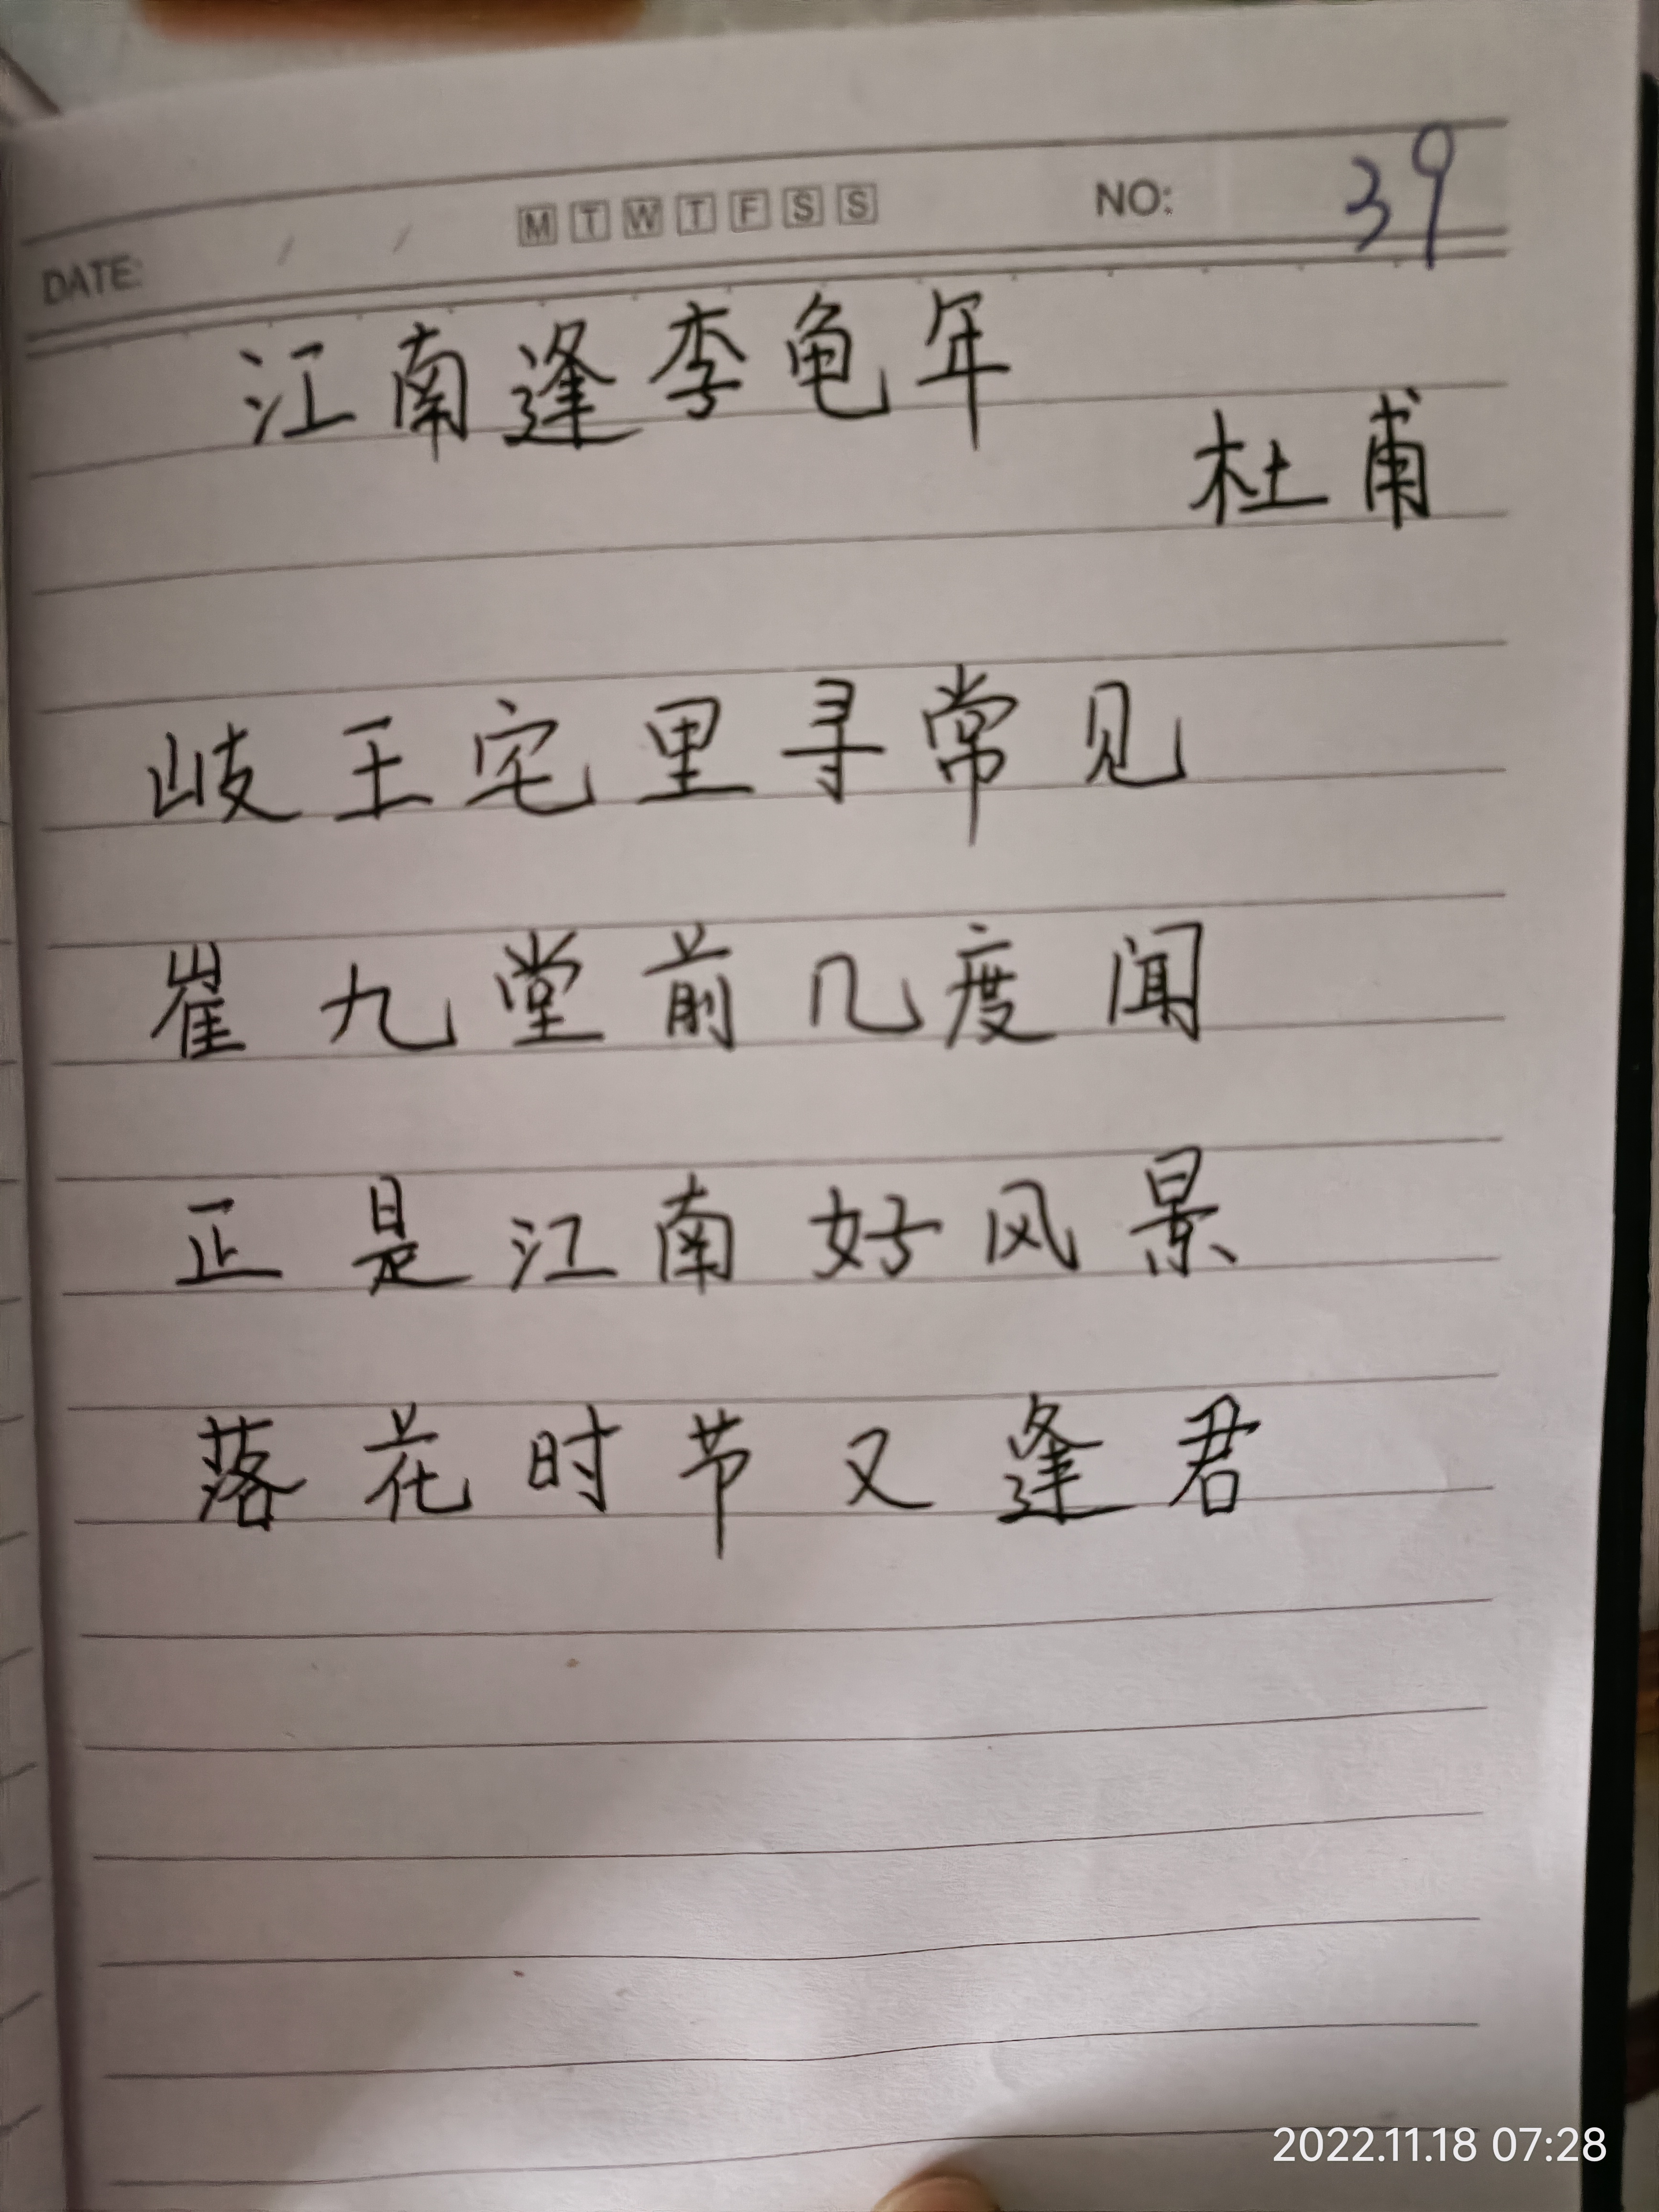 M T W T F S S NO: 39
DATE: / /
江南逢李龟年
杜甫
岐王宅里寻常见
崔九堂前几度闻
正是江南好风景
落花时节又逢君
2022.11.18 07:28